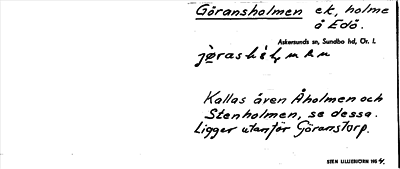 Göransholmen ek, holme
å Edö.
Askersunds sn, Sundbo hd, Ör. l.
Kallas även Åholmen och
Stenholmen, se dessa.
Ligger utanför Göranstorp.
STEN LILLIEBJÖRN 195